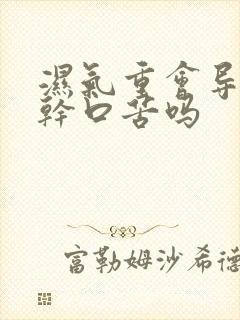 濕氣重會导
幹口苦吗
富勒姆沙希德